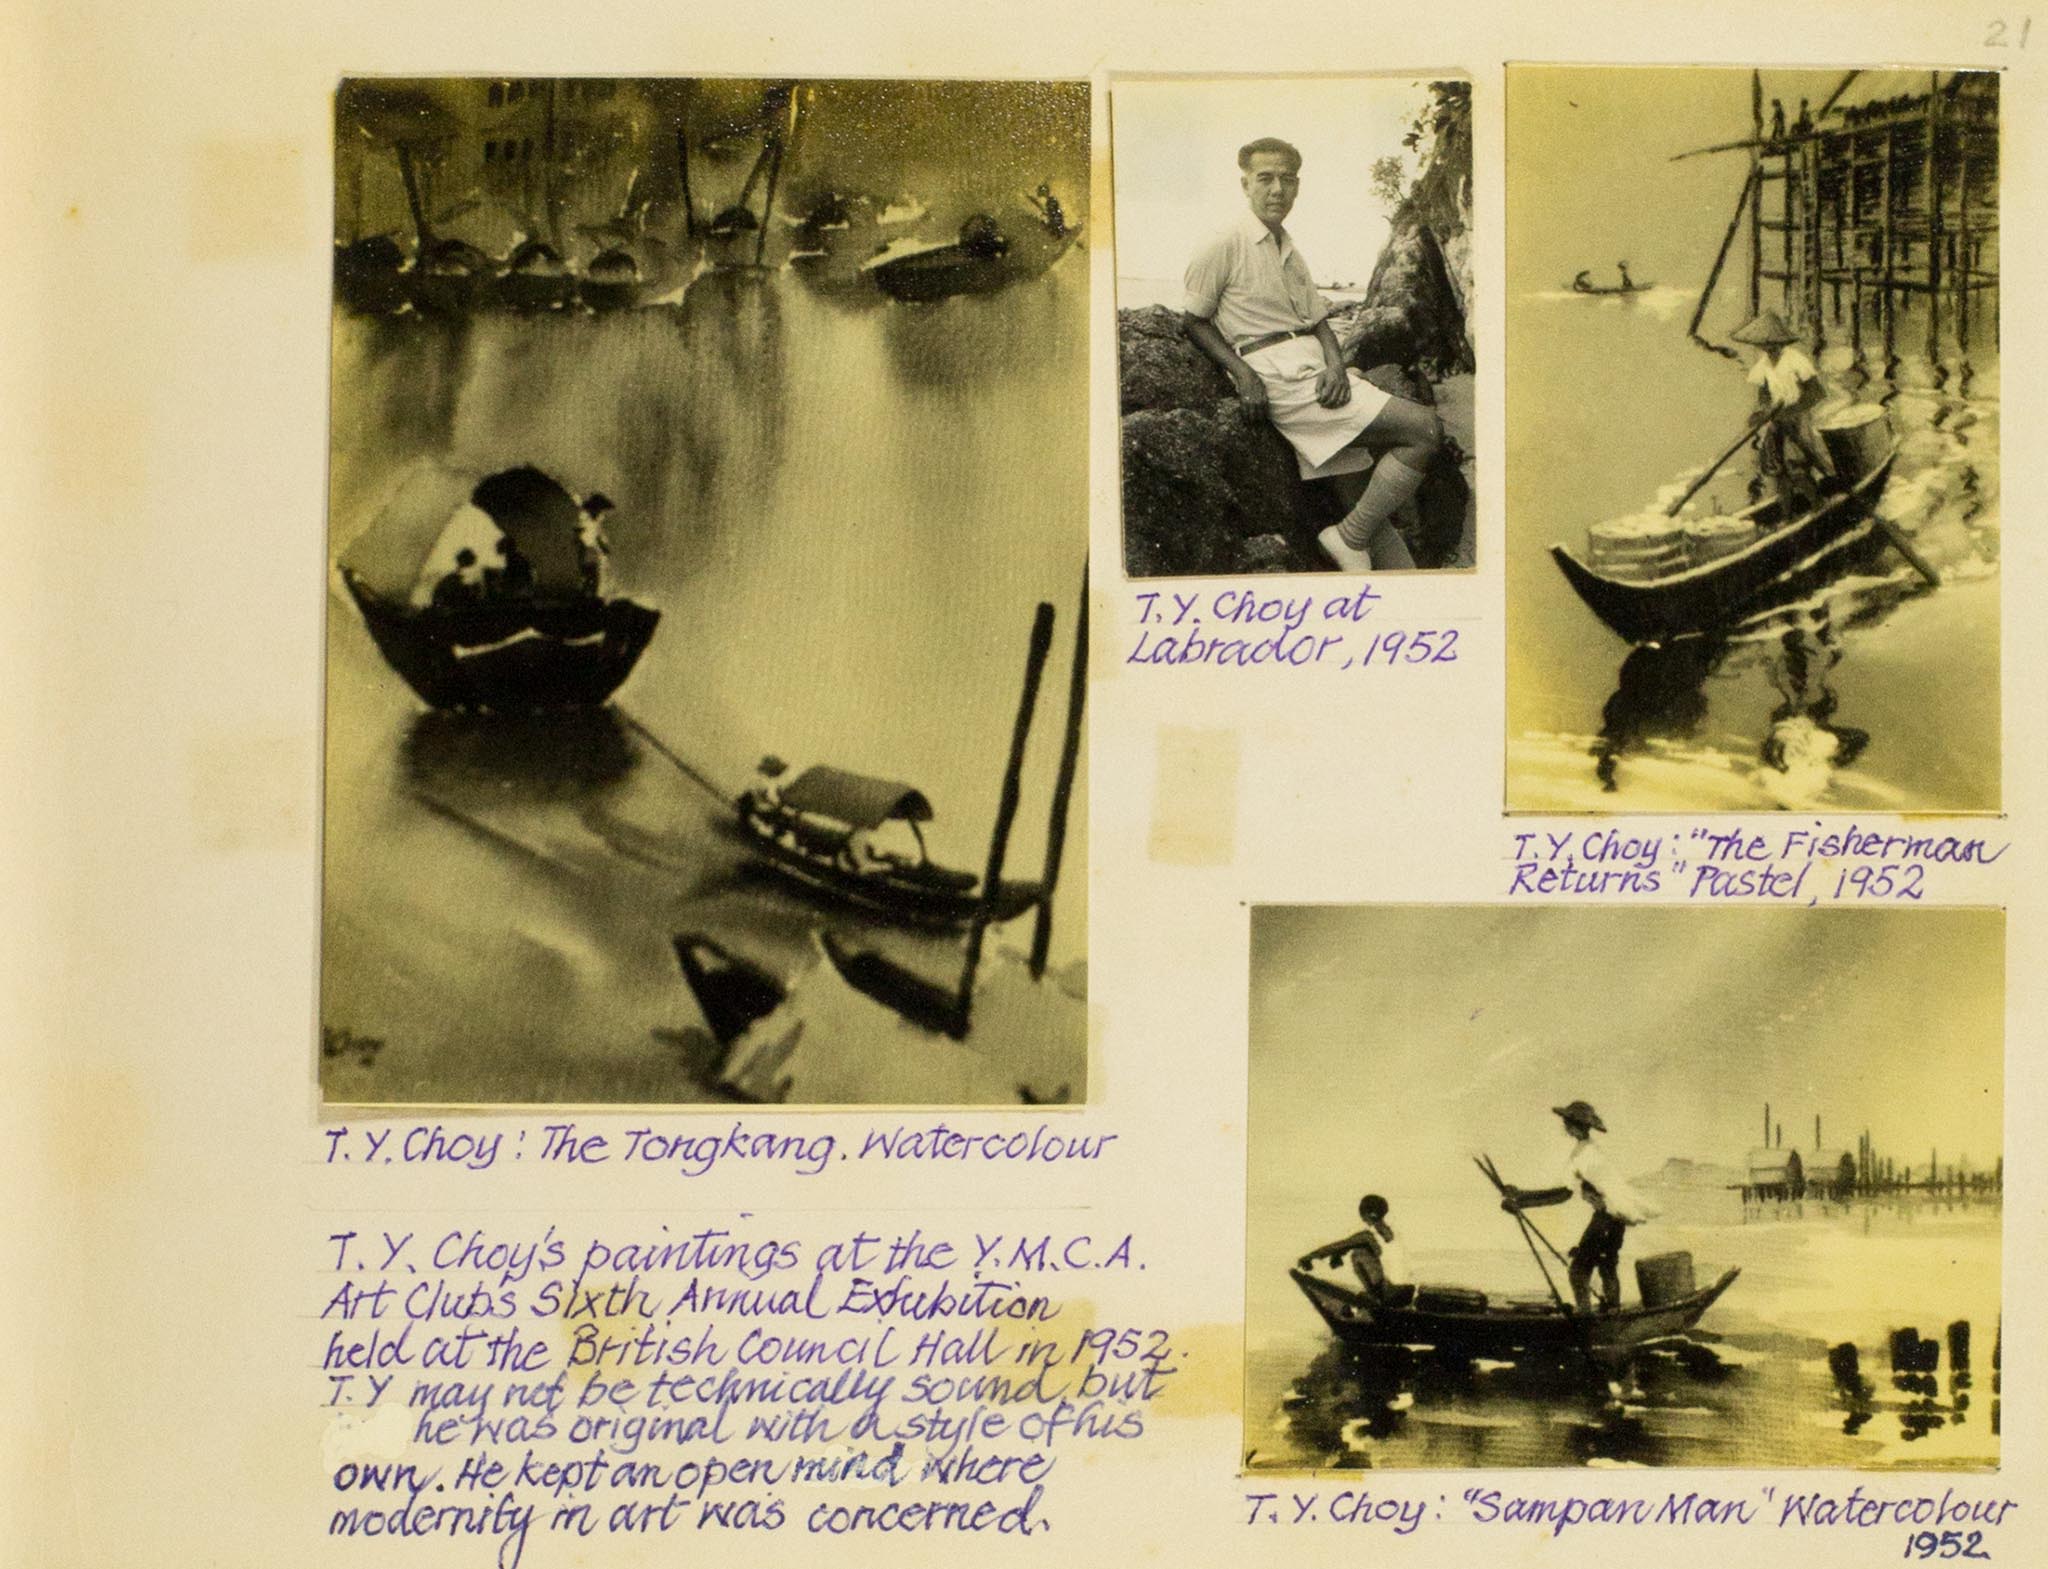 21
T. Y. Choy at
Labrador, 1952
T. Y. Choy: "The Fisherman
Returns" Pastel, 1952
T. Y. Choy: The Tongkang. Watercolour
T. Y. Choy's paintings at the Y.M.C.A.
Art Club's Sixth Annual Exhibition
held at the British Council Hall in 1952.
T. Y may not be technically sound, but
he was original with a style of his
own. He kept an open mind where
modernity in art was concerned.
T. Y. Choy: "Sampan Man" Watercolour
1952